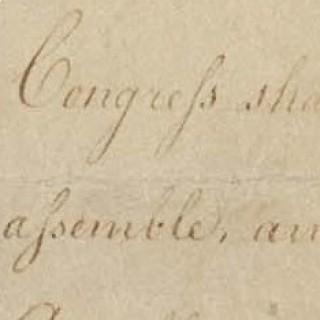 Congreſs sha
aſsemble, an